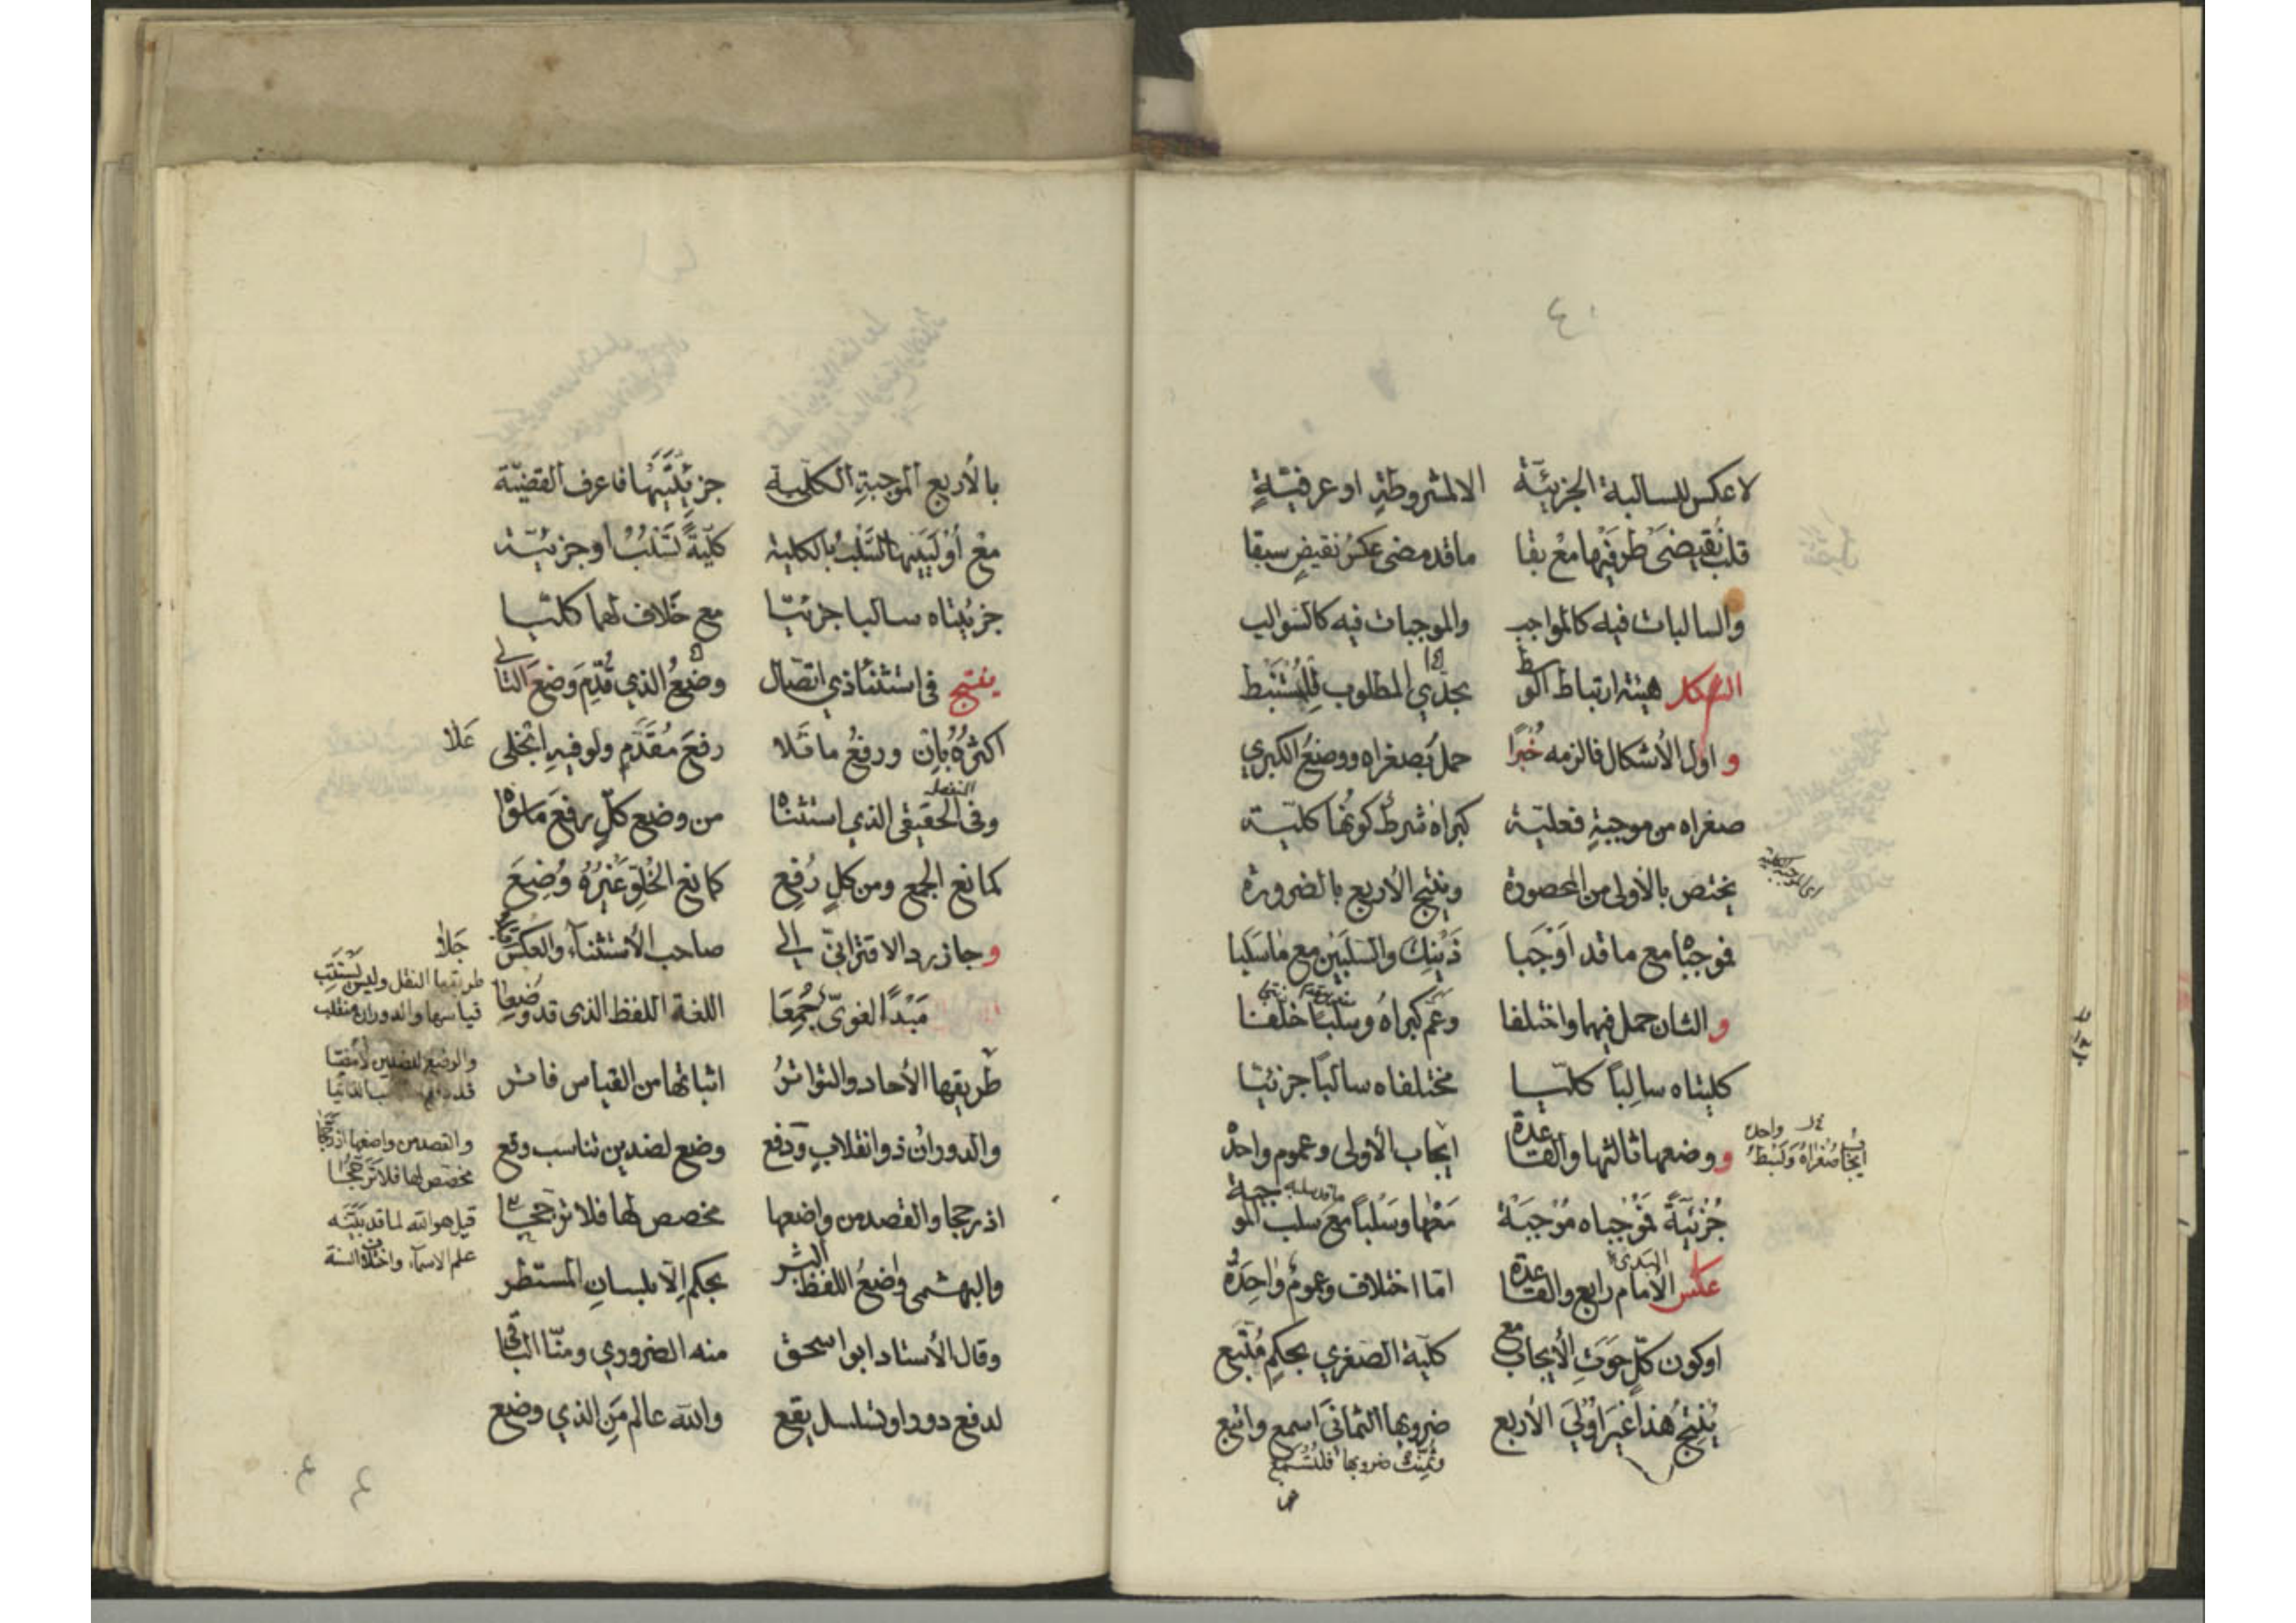 ٤٠
لا عكس للسالبة الجزئيّة الا لمشروطةٍ او عرفيّةٍ
قلب نقيضَي طرفيها مع بقا ما قد مضى عكسُ نقيضٍ سبقا
والسالبات فيه كالمواجب والموجبات فيه كالسوالب
الشكل هيئة ارتباط الوسط بجدّي المطلوب للمستنبط
و اول الأشكال فالزمه خُبرًا حمل بصغراه ووضعُ الكبري
صغراه من موجبةٍ فعليّة كبراه شرطٌ كونُها كليّة
يختص بالأولى من المحصورة وينتج الأربع بالضرورة
فموجبًا مع ما قد اَوْجَبا ذَيْنِك والسّلبَين مع ما سَلَبا
و الثان حمل فيهما واختلفا وعَم كبراهُ وسلبًا خلفا
كليتاه سالبًا كليّا مختلفاه سالبًا جزئيّا
و وضعها ثالثها والقاعدة ايجاب الأولى وعموم واحدة
ايجاب صُغراهُ وَسَبْط
جُزئيّةً مُوْجباه مُوْجَبَة مَعْها وسَلْبًا مع سلب الموجبة
عكس الامام رابع والقاعدة امّا اختلاف وعمومُ واحِدَةْ
او كون كلٍّ حوَتِ الأيجاب مع كليّة الصغري بحكمٍ مُتّبع
يُنْتِجُ هذا غيرَ اوْلَي الأربع ضروبها الثماني اسمع واتبع
ضروبها فلتُسمَع
بالأربع الموجبةِ الكلّية جزئيّتَيْها فاعرف القضيّة
مع أوليَيْها السَّلبُ بالكلية كليّةً تسْلبُ او جزئيّة
جزئيتاه سالبا جزئيّا مع خلاف لهما كليّا
ينتج في استثنا ذي اتصال وضعُ الذي قُدّمَ وضعَ التالي
اكثرُهُ بإنْ ورفعُ ما تلا رفعَ مُقَدَّمٍ ولو فيهِ انجلى
عَلا
وفي الحقيقي الذي استثناه من وضع كلٍّ رفعَ ما سواه
كمانع الجمع ومن كلٍ رُفِع كمانع الخُلوِّ غيرُهُ وُضِعَ
و جاز رد الاقترانيّ الى صاحب الأستثناء والعكس
جَلا
مَبْدأ لغويّ جُمِعَا اللغة اللفظ الذي قد وُضِعا
طريقها الأحاد والتواترُ اثباتها من القياس فاتر
والدورانُ ذو انقلابٍ ودَفع وضع لضدين تناسب وقع
اذ رجحا والقصد من واضعها مخصص لها فلا ترجحا
والبهشمي واضعُ اللفظ البشر بحكمِ الّا بلسانِ المستطر
وقال الأستاد ابو اسحق منه الضروري ومنّا الباقي
لدفع دور او تسلسل يقع والله عالم مَنِ الذي وضع
طريقها النقل وليس يستتب
قياسها والدوران منقلب
والوضع لضدين
والقصد من واضعها اذ رجحا
مخصص لها فلا ترجحا
قيل هو الله لما قد بيّنه
علم الاسماء واختلاف السنة